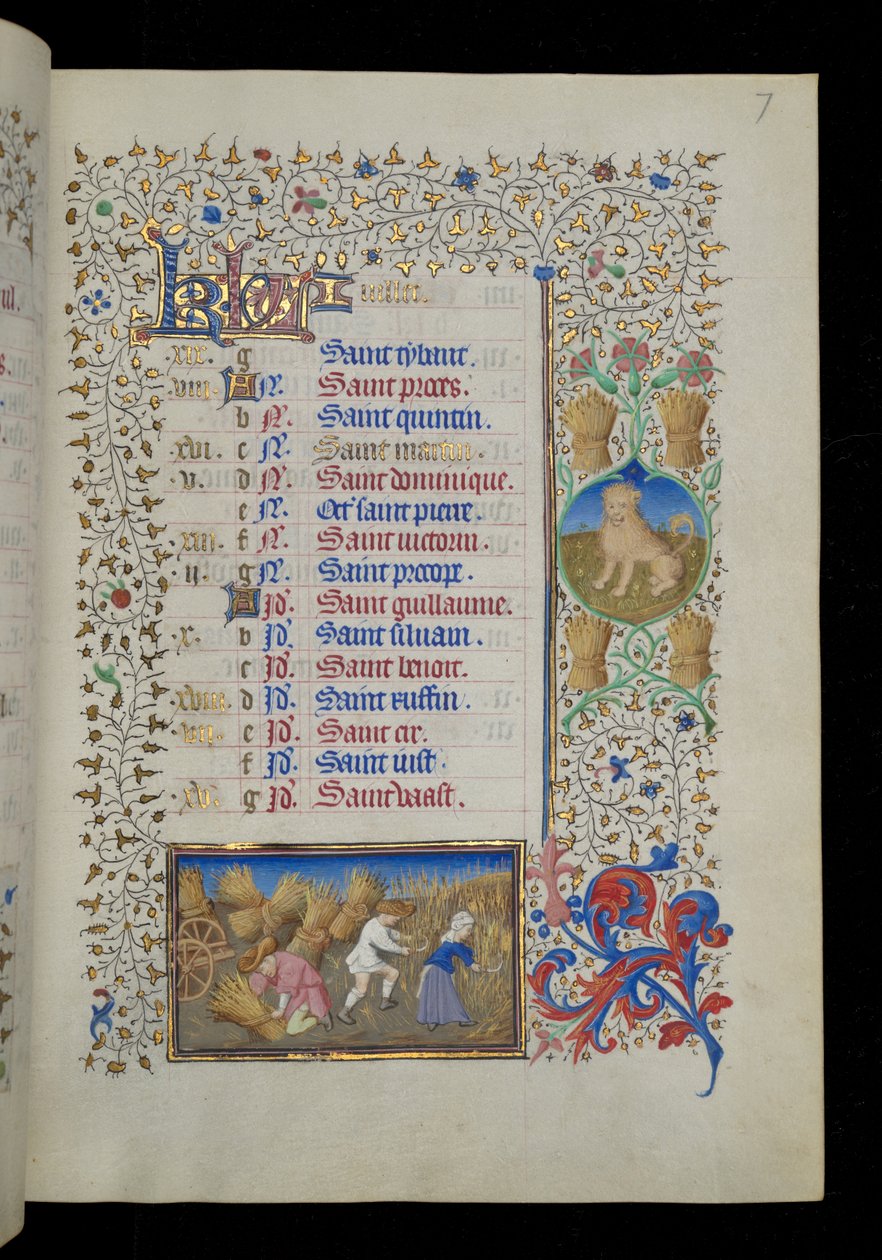 7
KL Iuillet.
.xix. g Saint tybaut.
.viii. A N. Saint proces.
b N. Saint quintin.
.xvi. c N. Saint martin.
.v. d N. Saint dominique.
e N. Oct saint pierre.
.xiii. f N. Saint victorin.
.ii. g N. Saint procope.
A Id. Saint guillaume.
.x. b Id. Saint siluain.
c Id. Saint benoit.
.xviii. d Id. Saint ruffin.
.vii. e Id. Saint cir.
f Id. Saint iust.
.xv. g Id. Saint vaast.